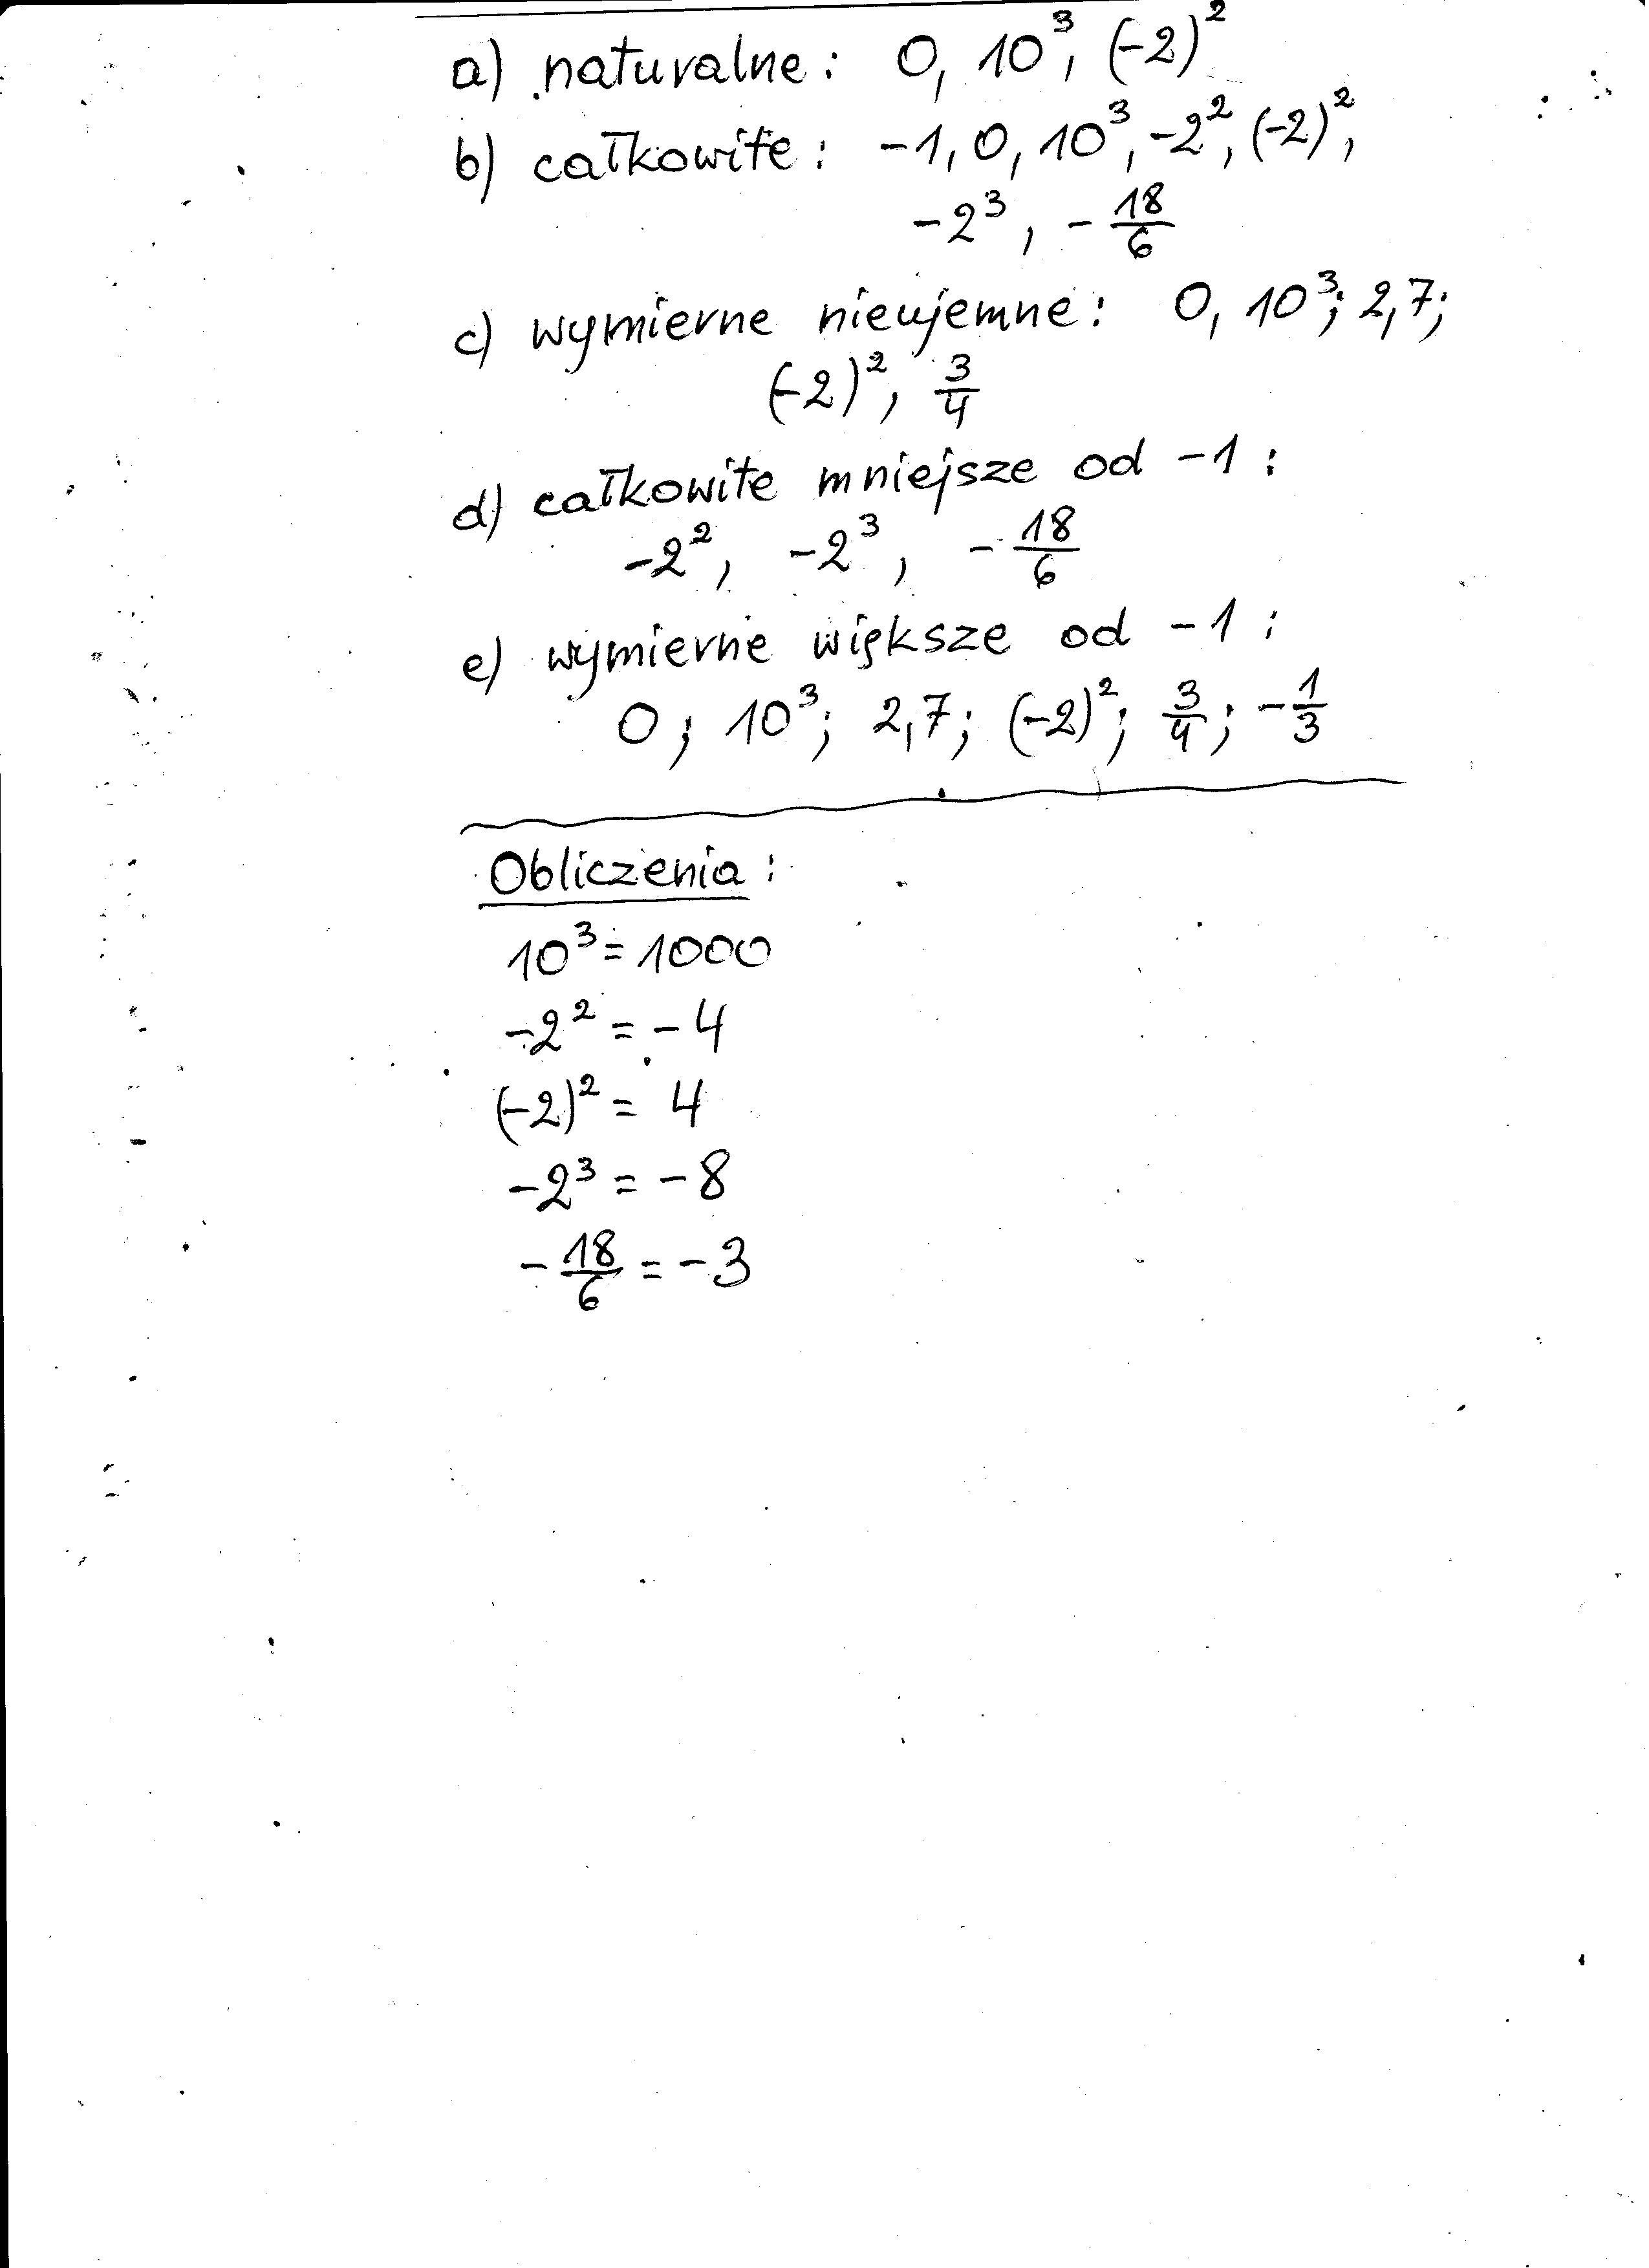 a) naturalne: 0, 10³, (-2)²
b) całkowite: -1, 0, 10³, -2², (-2)²,
-2³, -18/6
c) wymierne nieujemne: 0, 10³; 2,7;
(-2)², 3/4
d) całkowite mniejsze od -1:
-2², -2³, -18/6
e) wymierne większe od -1:
0; 10³; 2,7; (-2)²; 3/4; -1/3
Obliczenia:
10³ = 1000
-2² = -4
(-2)² = 4
-2³ = -8
-18/6 = -3